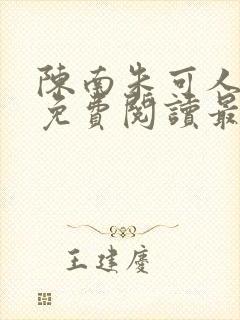 陳南朱可人
免費閱讀最
王建慶